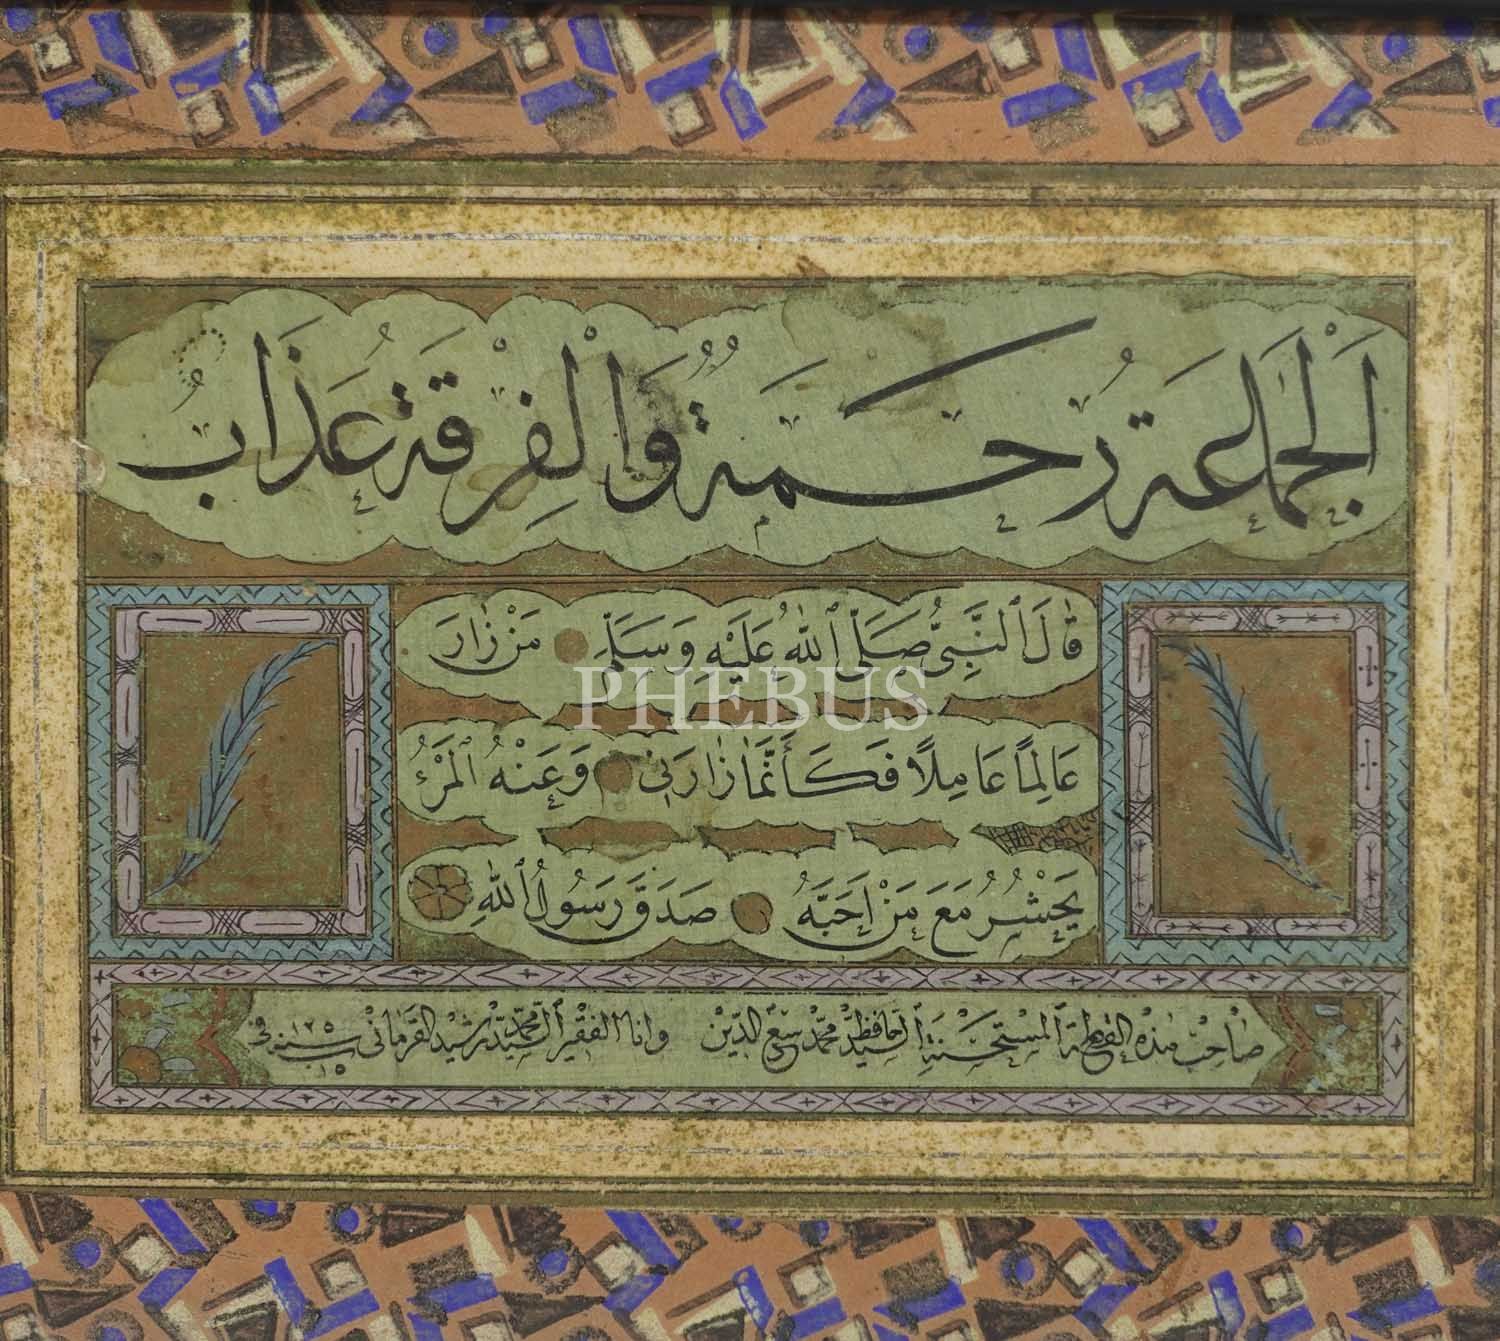 اَلْجَمَاعَةُ رَحْمَةٌ وَالْفِرْقَةُ عَذَابٌ
قَالَ النَّبِيُّ صَلَّى اللهُ عَلَيْهِ وَسَلَّمَ مَنْ زَارَ
PHEBUS
عَالِمًا عَامِلًا فَكَأَنَّمَا زَارَنِي وَعَنْهُ الْمَرْءُ
يُحْشَرُ مَعَ مَنْ اَحَبَّهُ صَدَقَ رَسُولُ اللهِ
صاحب هذه القطعة المستحسنة السيد الحافظ محمد سعد الدين وانا الفقير السيد محمد رشيد القرماني في سنة